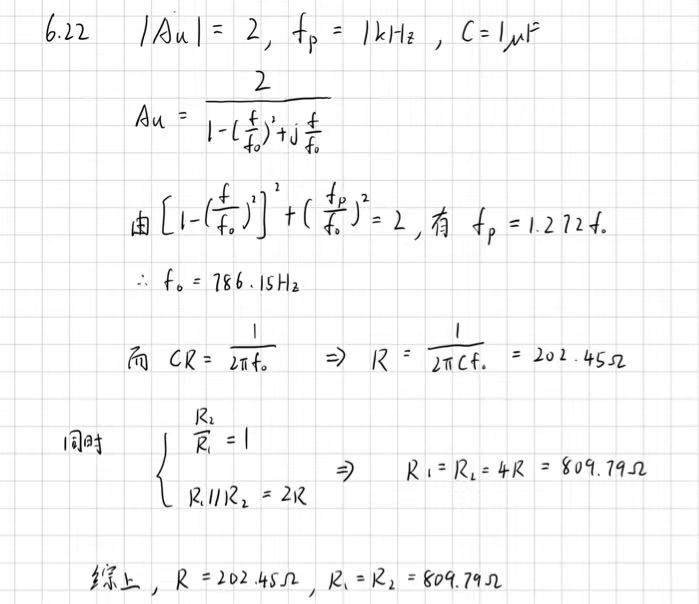 6.22 |Au| = 2, fp = 1kHz, C = 1μF
Au = 2 / (1-(f/f₀)²+j f/f₀)
由 [1-(f/f₀)²]² + (fp/f₀)² = 2, 有 fp = 1.272f₀
∴ f₀ = 786.15Hz
而 CR = 1/(2πf₀) ⇒ R = 1/(2πCf₀) = 202.45Ω
同时 { R₂/R₁ = 1
R₁//R₂ = 2R ⇒ R₁ = R₂ = 4R = 809.79Ω
综上, R = 202.45Ω, R₁ = R₂ = 809.79Ω